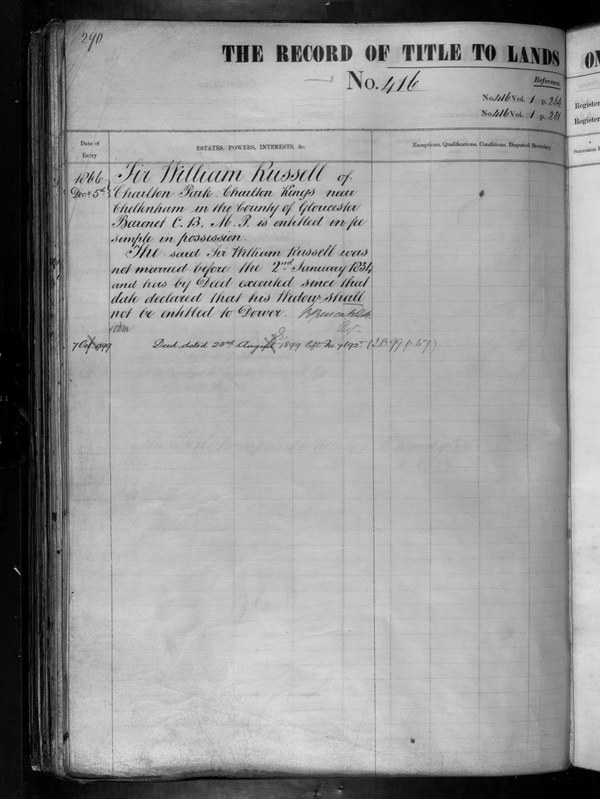 290
THE RECORD OF TITLE TO LANDS
ON
No. 416
Reference.
No. 416 Vol. 1 p. 264
No. 416 Vol. 1 p. 201
Register
Register
Date of
Entry
ESTATES, POWERS, INTERESTS, &c.
Exceptions, Qualifications, Conditions, Disputed Boundary
Succession
1866 Sir William Russell of
Decr. 5th Charlton Park, Charlton Kings near
Cheltenham in the County of Gloucester
Baronet C. B. M. P. is entitled in fee
simple in possession.
The said Sir William Russell was
not married before the 2nd January 1834
and has by Deed executed since that
date declared that his Widow shall
not be entitled to Dower.
Regr.
7 Oct 1899 Deed dated 28th August 1899